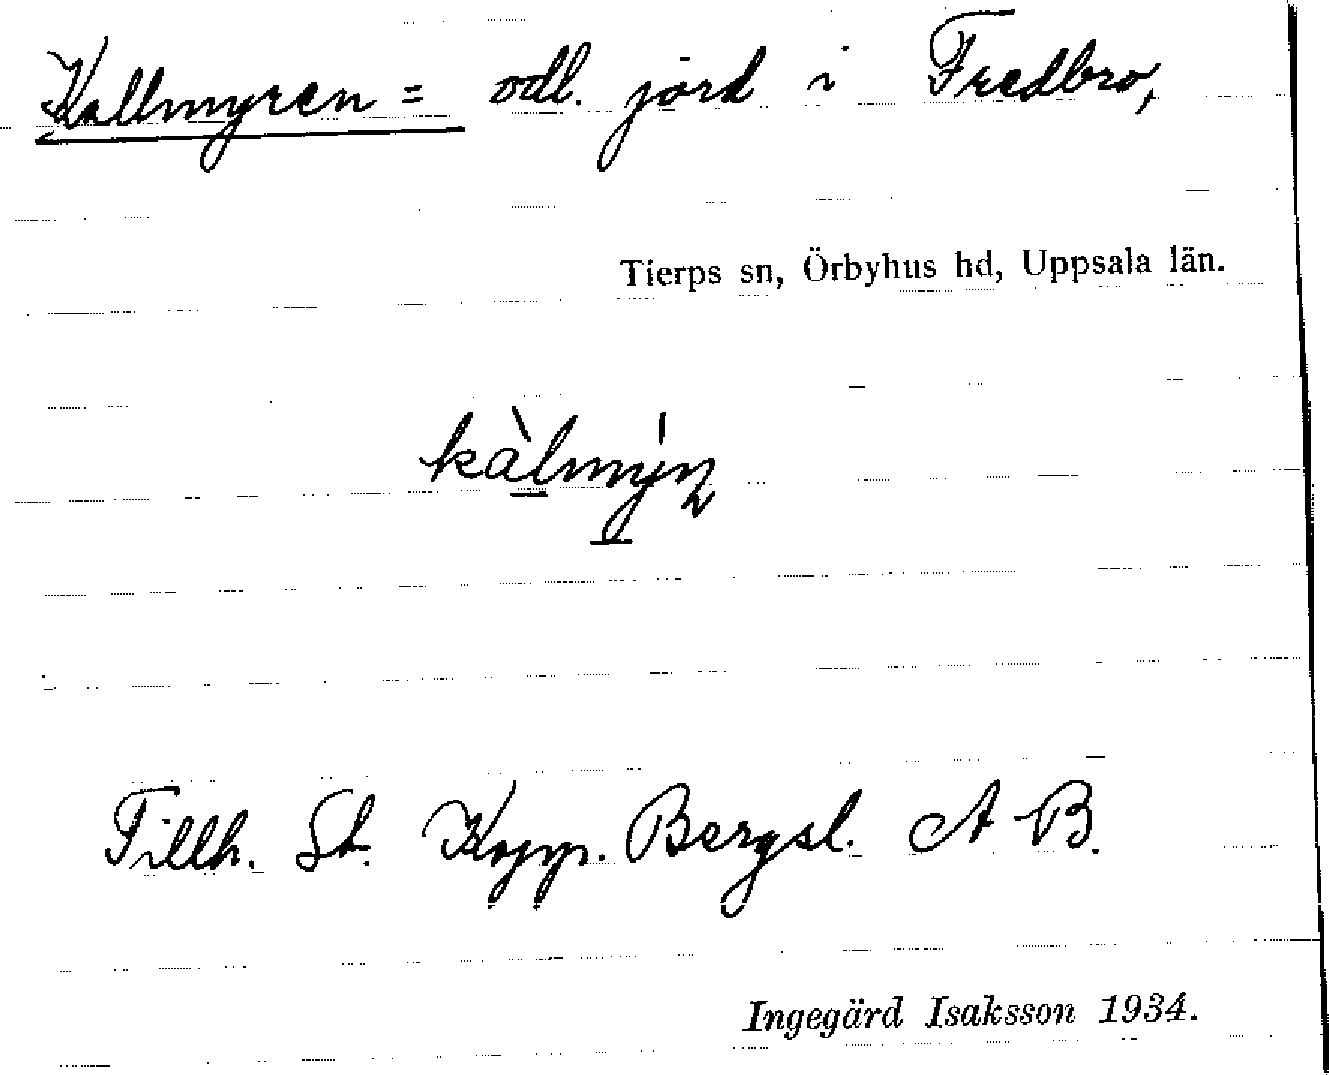 Kallmyren = odl. jord i Fredbro,
Tierps sn, Örbyhus hd, Uppsala län.
kàlmýn
Tillh. St. Kopp. Bergsl. A B.
Ingegärd Isaksson 1934.